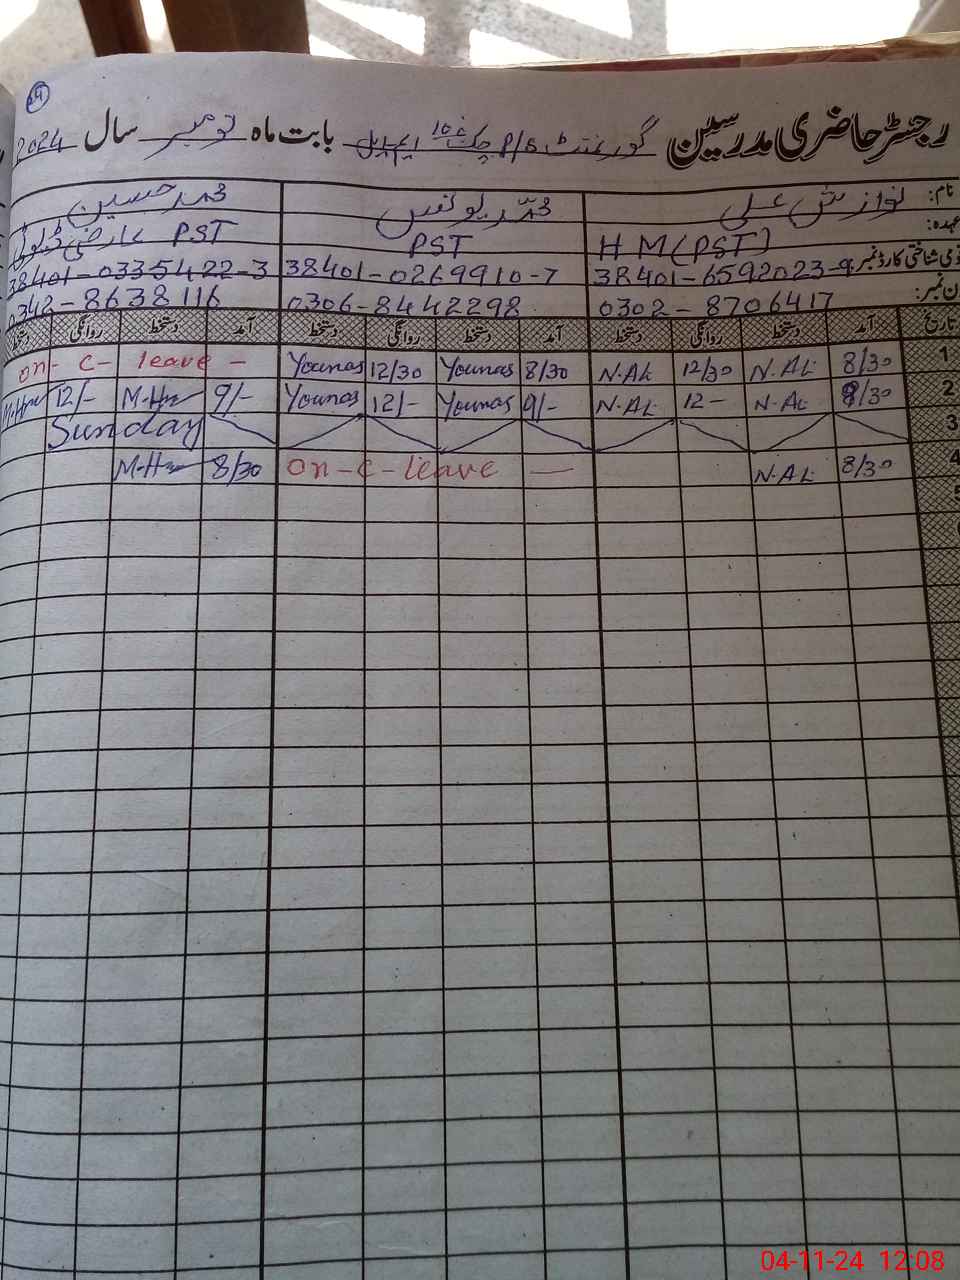 29
رجسٹر حاضری مدرسین گورنمنٹ P/S چک 10 بابت ماہ نومبر سال 2024
نام: نوازش علی محمد یونس محمد حسین
عہدہ: H M (PST) PST PST عارضی
قومی شناختی کارڈ نمبر 38401-6592023-9 38401-0269910-7 38401-0335422-3
ن نمبر: 0302-8706417 0306-8442298 0342-8638116
تاریخ آمد دستخط روانگی دستخط آمد دستخط روانگی دستخط آمد دستخط روانگی دستخط
1 8/30 N.AL 12/30 N.AL 8/30 Younas 12/30 Younas on - C - leave -
2 9/30 N.AL 12- N.AL 9/- Younas 12/- Younas 9/- M.Hn 12/- M.Hn
3 Sunday
4 8/30 N.AL on - C - leave — 8/30 M.Hn
5
04-11-24 12:08